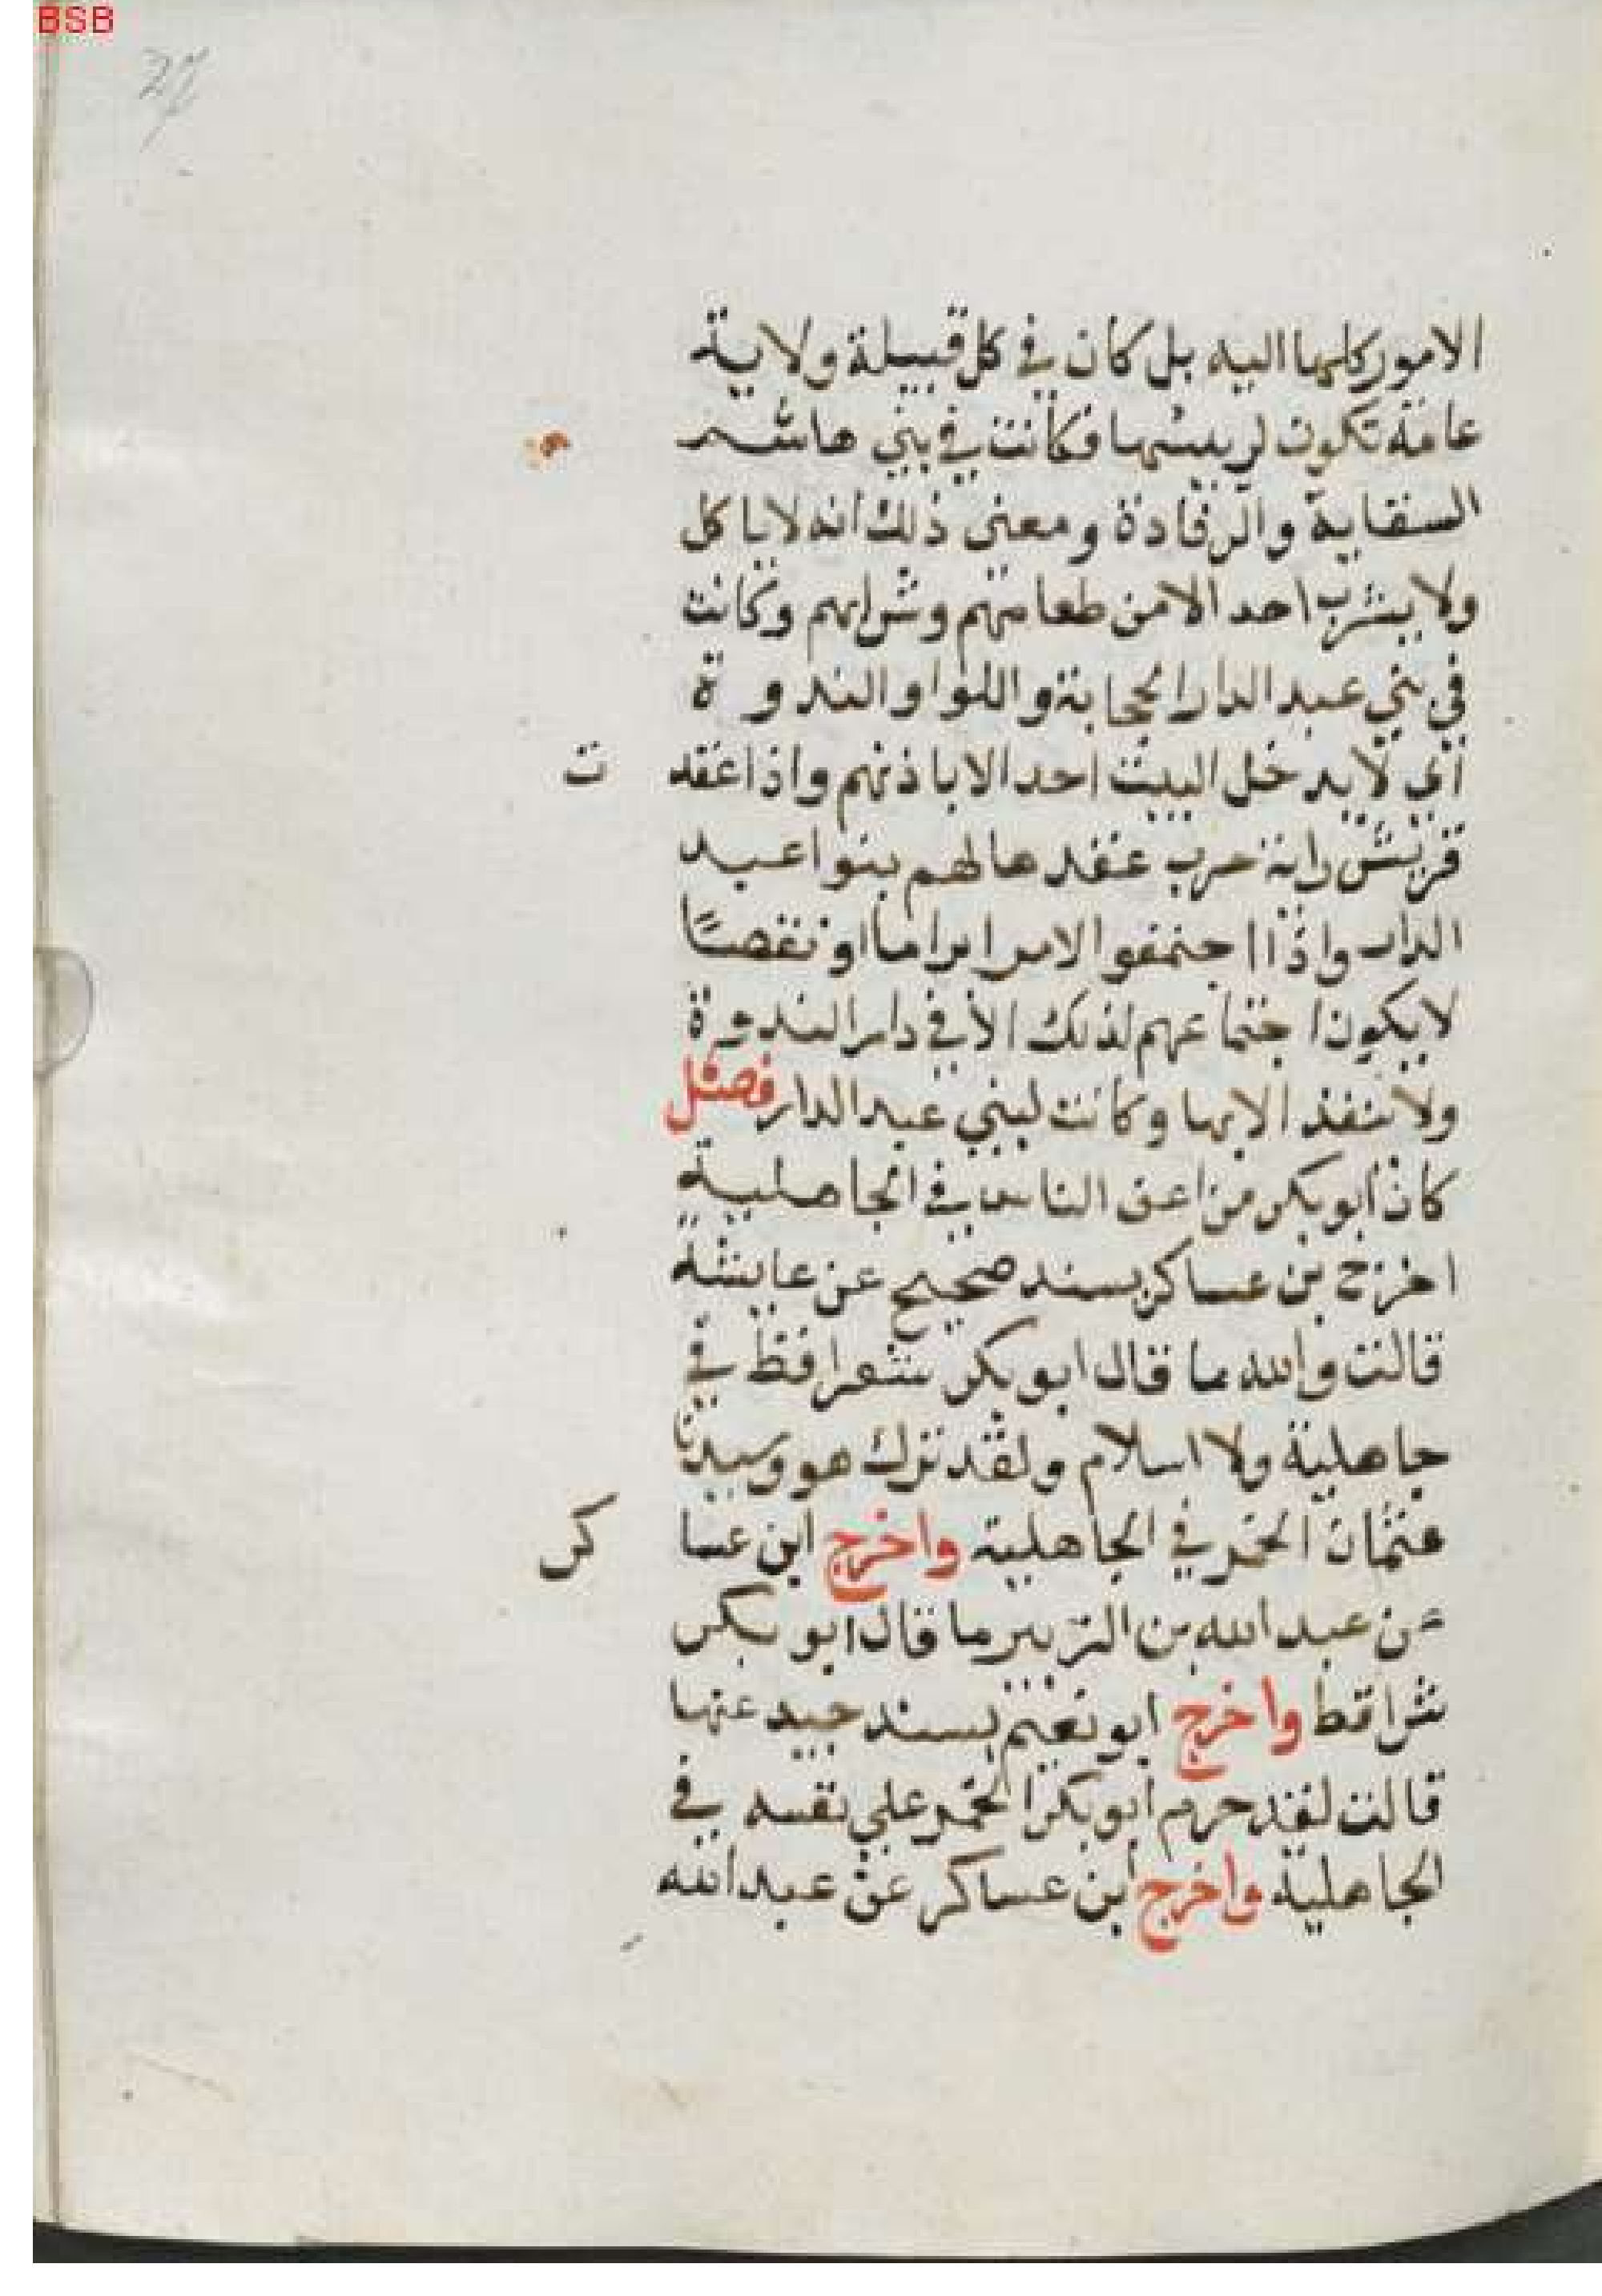 BSB
27
الامور كلها اليه بل كان في كل قبيلة ولاية
عامة تكون لرييسها فكانت في بني هاشم
السقاية والرفادة ومعنى ذلك انه لا ياكل
ولا يشرب احد الا من طعامهم وشرابهم وكانت
في بني عبد الدار الحجابة واللوا والندوة
أي لا يدخل البيت احد الا باذنهم واذا عقد ت
قريش راية حرب عقدها لهم بنوا عبد
الدار واذا اجتمعوا لامر ابراما او نقضًا
لا يكون اجتماعهم لذلك الا في دار الندوة
ولا تنفذ الا بها وكانت لبني عبد الدار فصل
كان أبو بكر من اعف الناس في الجاهلية
اخرج بن عساكر بسند صحيح عن عايشة
قالت والله ما قال ابو بكر شعرا قط في
جاهلية ولا اسلام ولقد ترك هو وسيدنا
عثمان الخمر في الجاهلية واخرج ابن عسا كر
عن عبد الله بن الزبير ما قال ابو بكر
شرا قط واخرج ابو نعيم بسند جيد عنها
قالت لقد حرم أبو بكر الخمر علي نفسه في
الجاهلية واخرج أبن عساكر عن عبد الله